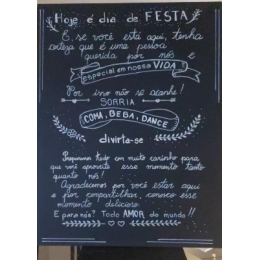 Hoje é dia de FESTA
E, se você está aqui, tenha
certeza que é uma pessoa
querida por nós e
especial em nossa VIDA!
Por isso não se acanhe!
SORRIA
COMA, BEBA, DANCE
divirta-se
Preparamos tudo com muito carinho para
que você aproveite esse momento tanto
quanto nós!
Agradecemos por você estar aqui
e por compartilhar conosco esse
momento delicioso.
E para nós? Todo AMOR do mundo!!